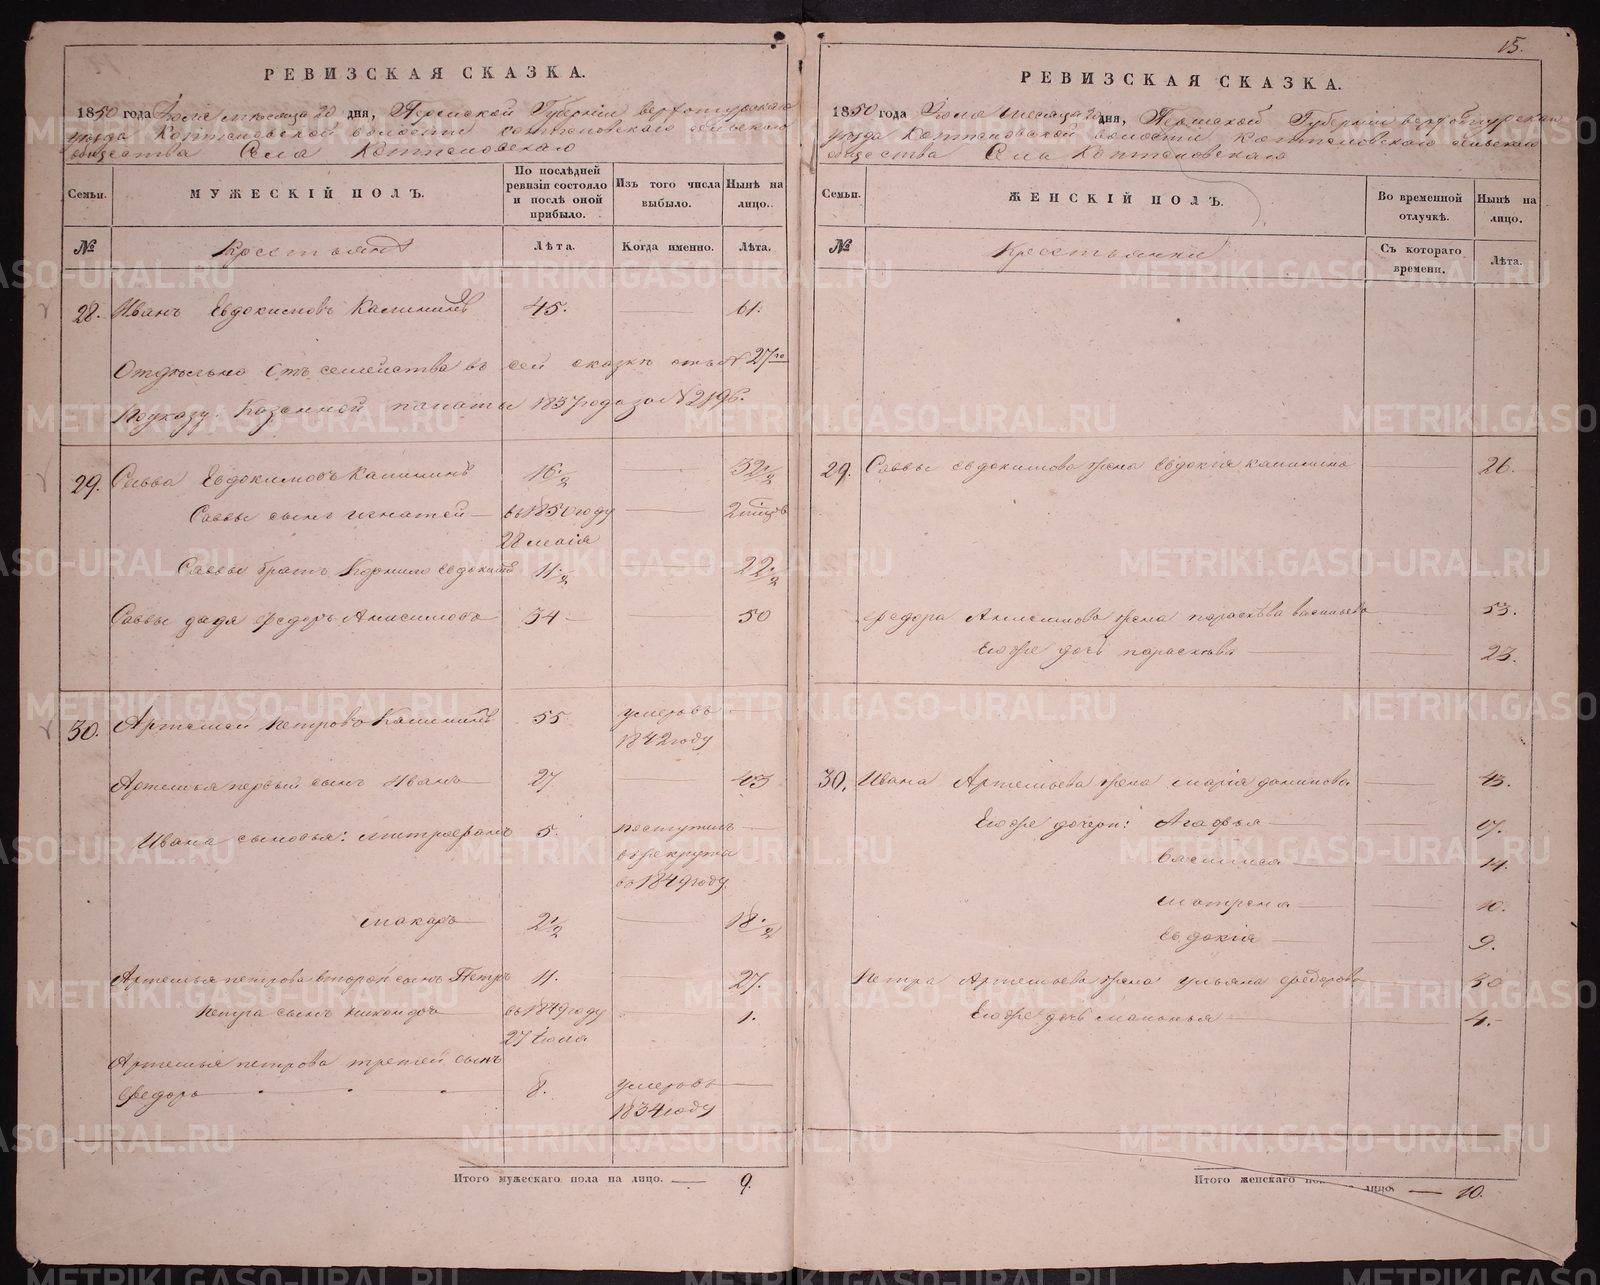 РЕВИЗСКАЯ СКАЗКА.
1850 года Іюля месяца 20 дня, Пермской Губерніи верхотурскаго
уѣзда Коптеловской волости коптеловскаго сельскаго
общества Села Коптеловскаго
Семьи.
МУЖЕСКІЙ ПОЛЪ.
По послѣдней ревизіи состояло и послѣ оной прибыло.
Изъ того числа выбыло.
Нынѣ на лицо.
№
Крестьяне
Лѣта.
Когда именно.
Лѣта.
28. Иванъ Евдокимовъ Калининъ 45. 61.
Отдѣльно отъ семейства въ сей сказкѣ отъ N 27го
По указу Казенной палаты 1837 года за N 2196.
29. Савва Евдокимовъ Калининъ 16 1/2 32 1/2
Саввы сынъ Игнатей въ 1850 году
28 маія
Саввы братъ Корнило Евдокимовъ 11 1/2 22 1/2
Саввы дядя Федоръ Анисимовъ 34 50
30. Артемей Петровъ Калининъ 55 умеръ въ
1842 году
Артемья первый сынъ Иванъ 27 43
Ивана сыновья: Митрофанъ 5. поступилъ
въ рекруты
въ 1849 году.
Макаръ 2 1/2 18 1/2
Артемья петрова второй сынъ Петръ 11. 27.
Петра сынъ Никандръ въ 1849 году 1.
27 Іюля
Артемья петрова третей сынъ
Федоръ 8. умеръ въ
1834 году
Итого мужескаго пола на лицо. 9.
15.
РЕВИЗСКАЯ СКАЗКА.
1850 года Іюля месяца 20 дня, Пермской Губерніи верхотурскаго
уѣзда Коптеловской волости Коптеловскаго сельскаго
общества Села Коптеловскаго
Семьи.
ЖЕНСКІЙ ПОЛЪ.
Во временной отлучкѣ.
Нынѣ на лицо.
№
Крестьянки
Съ котораго времени.
Лѣта.
29. Саввы евдокимова жена Евдокія калинина 26.
Федора Анисимова жена параскѣва васильева 53.
Его же дочь параскѣва 23.
30. Ивана Артемьева жена марія данилова 43.
Его же дочери: Агафья 17.
Василиса 14.
матрена 10.
Евдокія 9.
Петра Артемьева жена ульяна федорова 30
Его же дочь маланья 4.
Итого женскаго лицо. 10.
METRIKI.GASO-URAL.RU